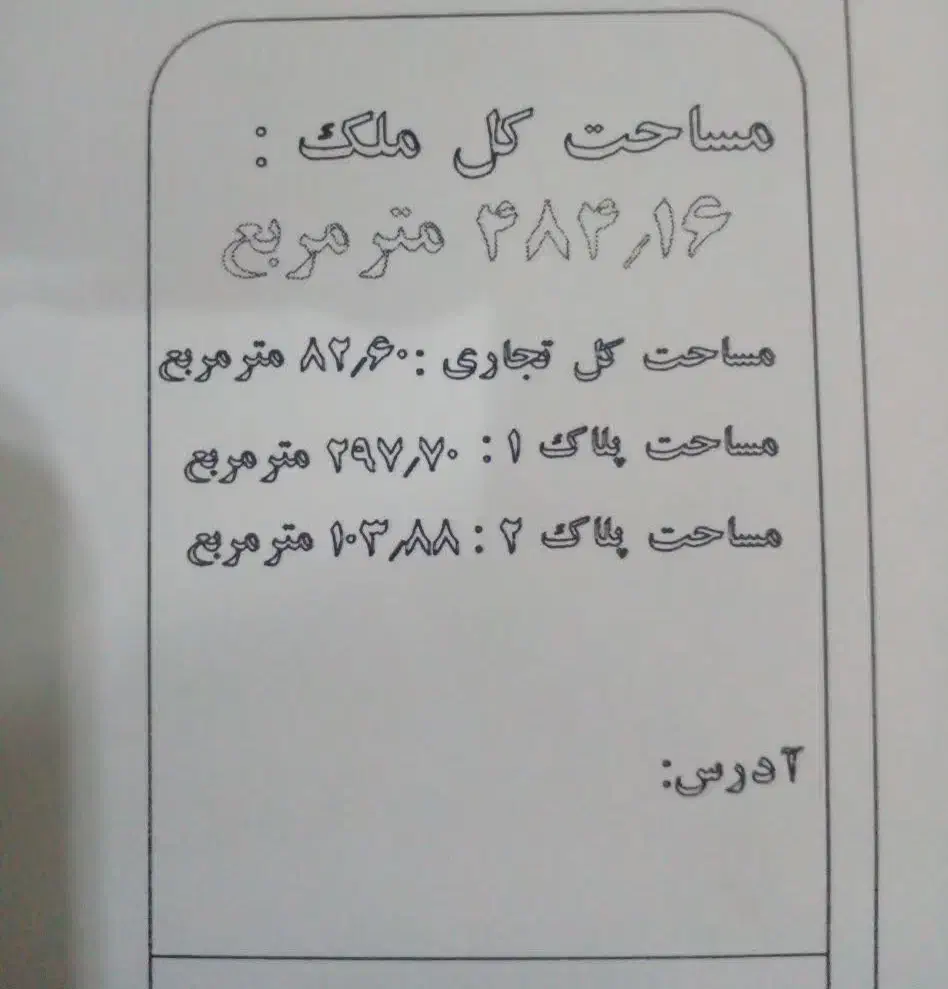 مساحت کل ملک :
۴۸۴٫۱۶ متر مربع
مساحت کل تجاری : ۸۲٫۶۰ متر مربع
مساحت پلاک ۱ : ۲۹۷٫۷۰ متر مربع
مساحت پلاک ۲ : ۱۰۳٫۸۸ متر مربع
آدرس: